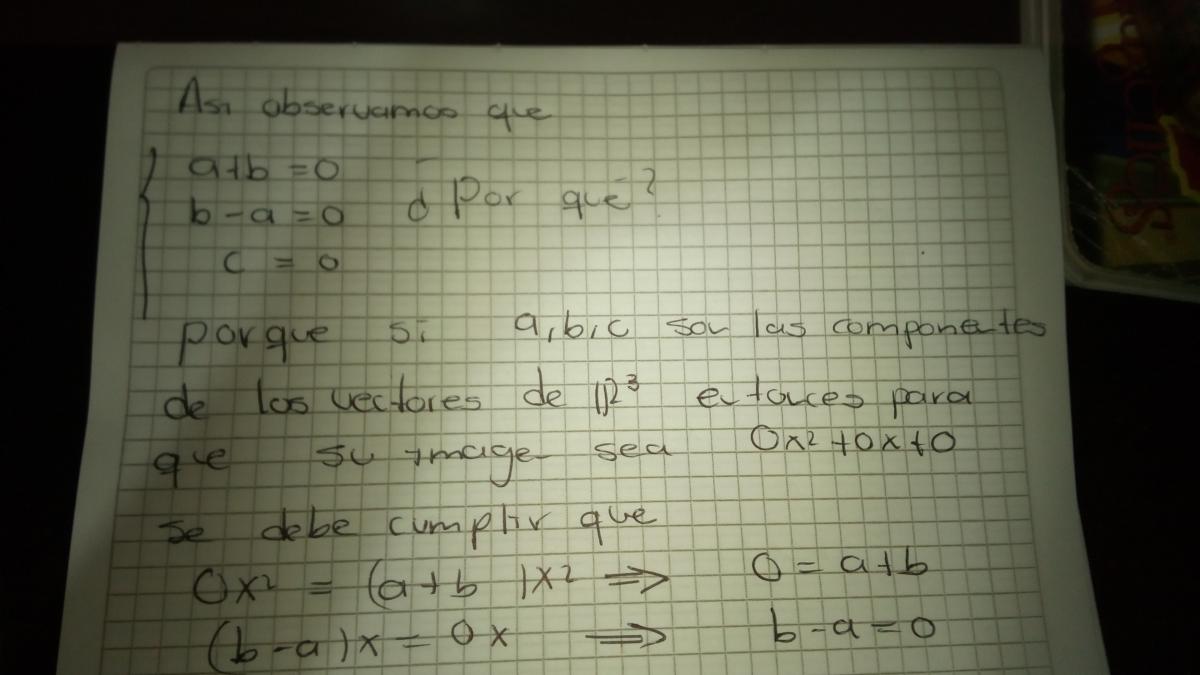 Asi observamos que
a+b = 0
b - a = 0 ¿ Por qué?
c = 0
porque si a, b, c son las componentes
de los vectores de ℝ³ entonces para
que su image sea 0x² + 0x + 0
se debe cumplir que
0x² = (a+b )x² ⇒ 0 = a+b
(b-a)x = 0x ⇒ b-a=0